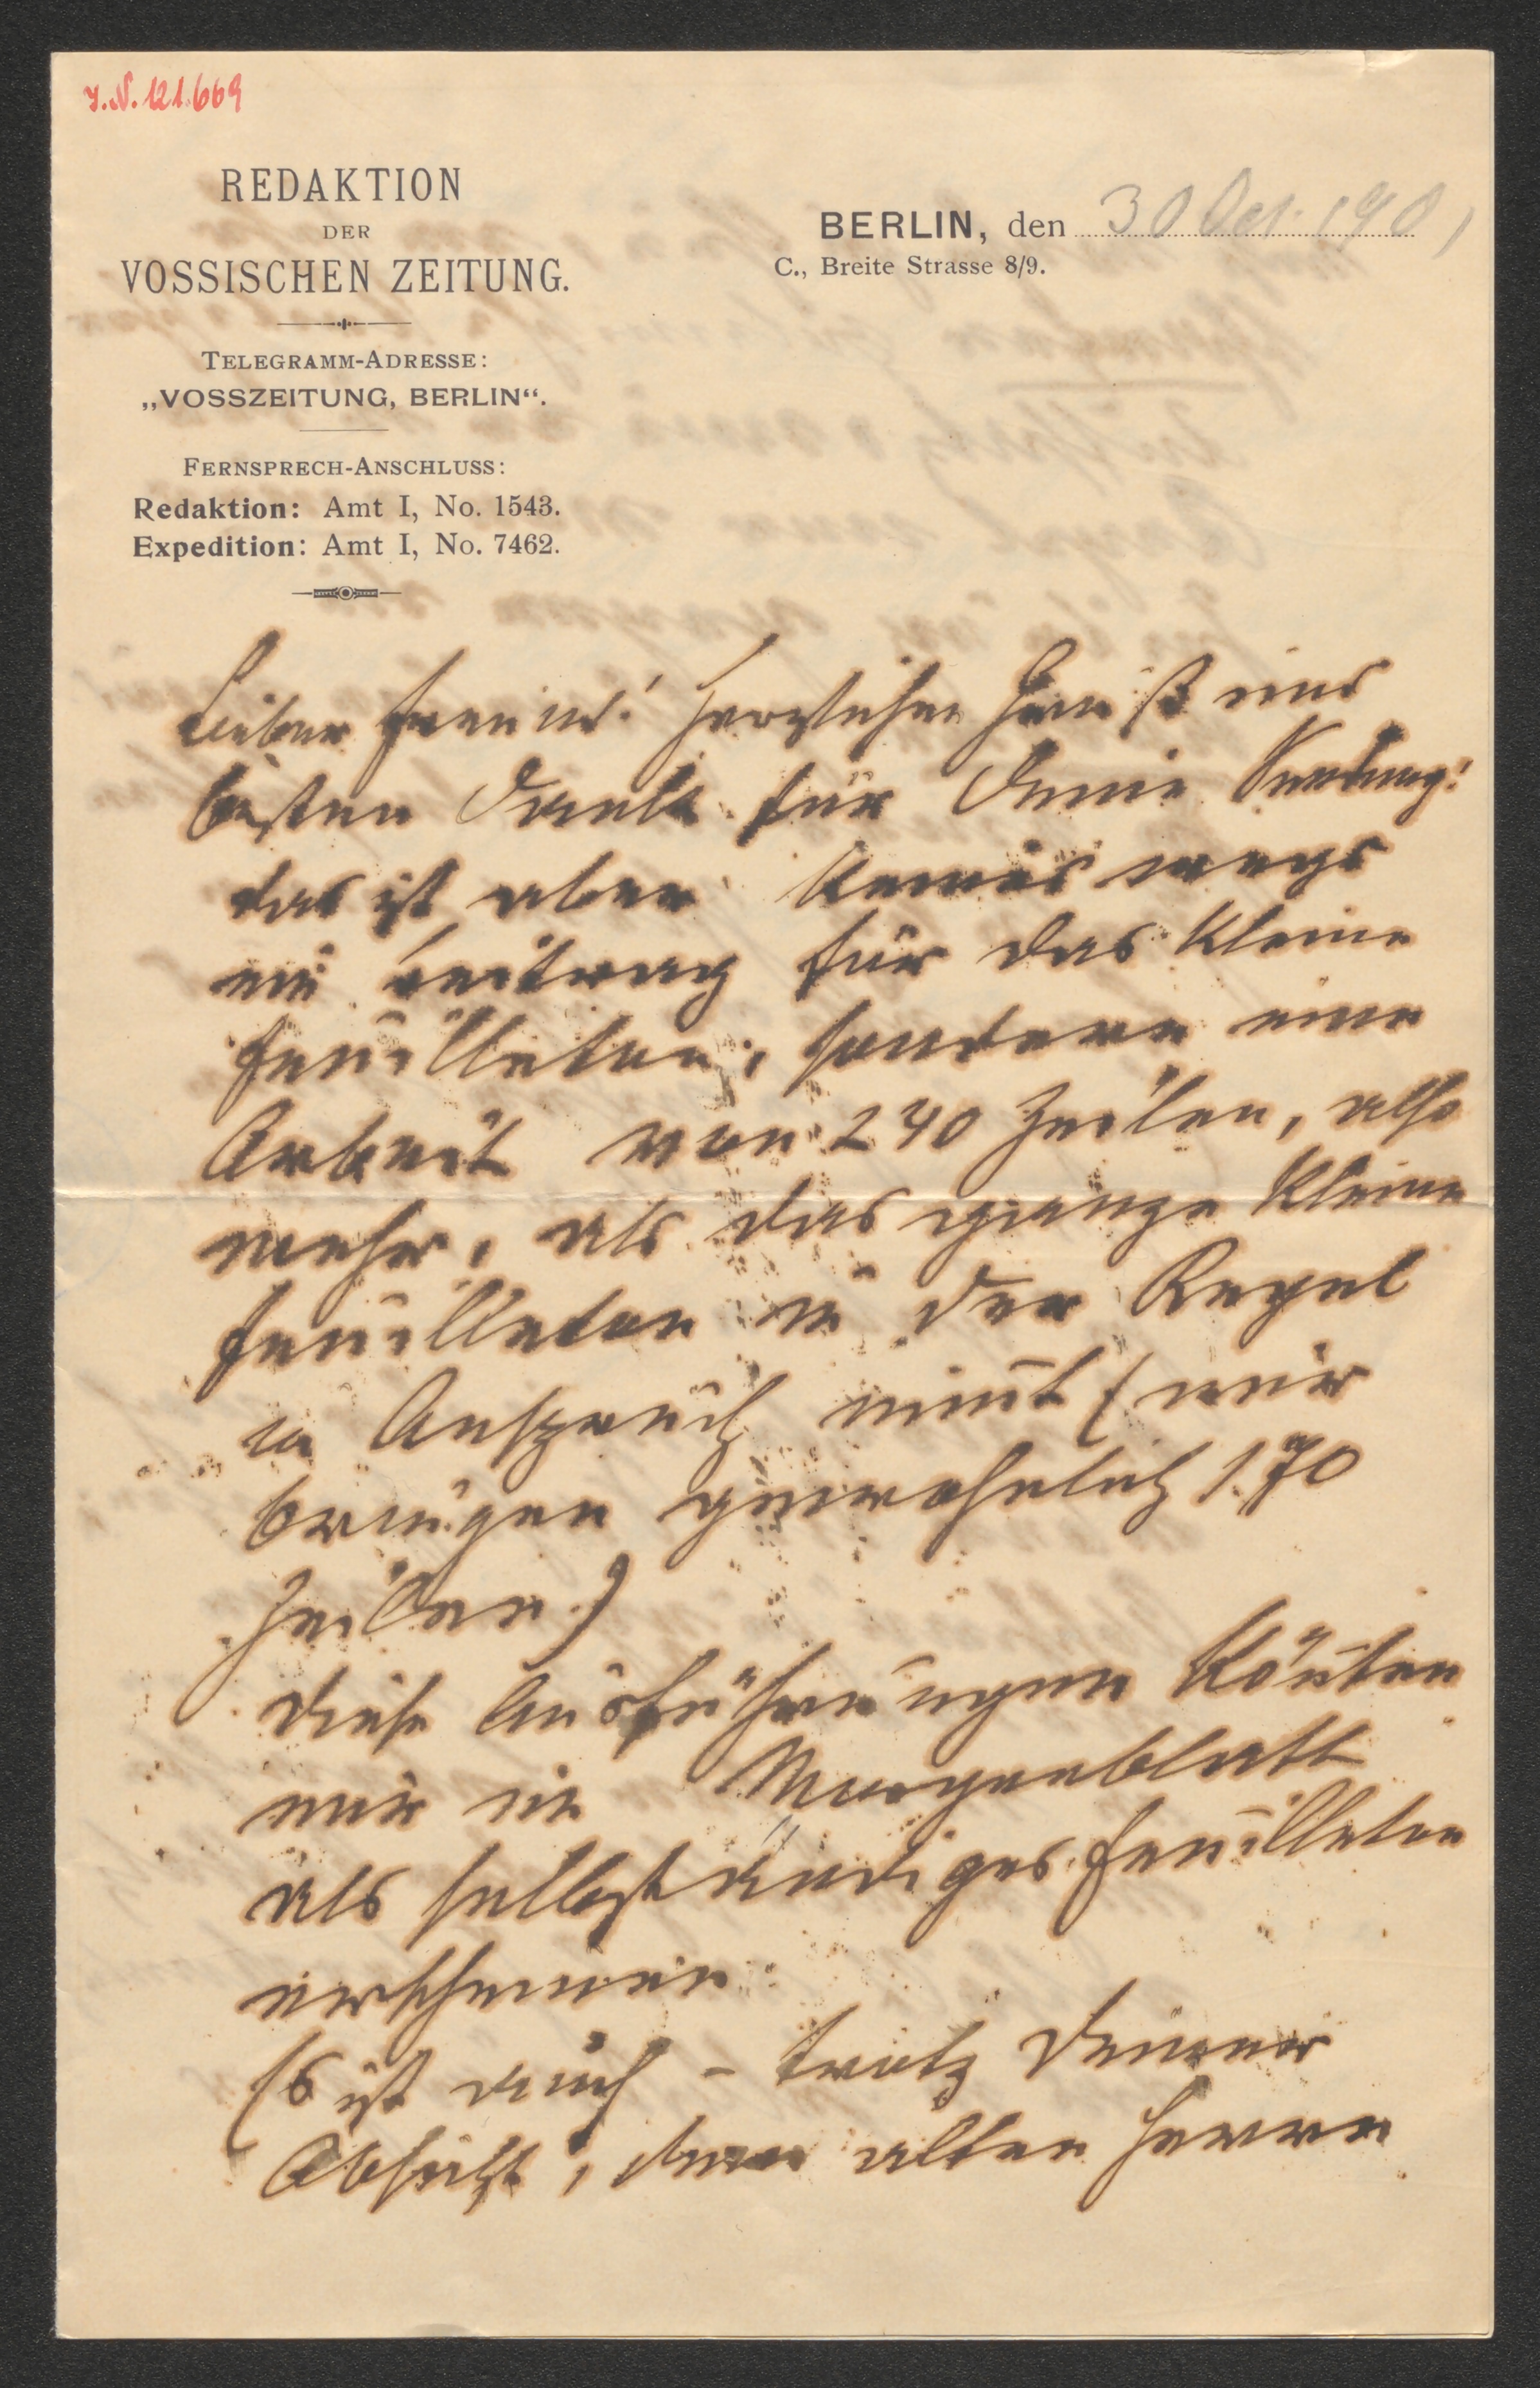 J.N. 121.669
REDAKTION
DER
VOSSISCHEN ZEITUNG.
TELEGRAMM-ADRESSE:
„VOSSZEITUNG, BERLIN“.
FERNSPRECH-ANSCHLUSS:
Redaktion: Amt I, No. 1543.
Expedition: Amt I, No. 7462.
BERLIN, den 30 Oct. 1901
C., Breite Strasse 8/9.
Lieber Freund! Herzlichen Gruß und
besten Dank für Deine Sendung!
das ist aber keineswegs
ein Beitrag für das kleine
Feuilleton, sondern eine
Arbeit von 240 Zeilen, also
mehr, als das ganze kleine
Feuilleton in der Regel
in Anspruch nimt (wir
bringen gewoehnlich 170
Zeilen.)
Diese Ausführungen könten
nur im Morgenblatt
als selbständiges Feuilleton
erscheinen.
Es ist auch – trotz Deiner
Absicht, dem alten Herrn